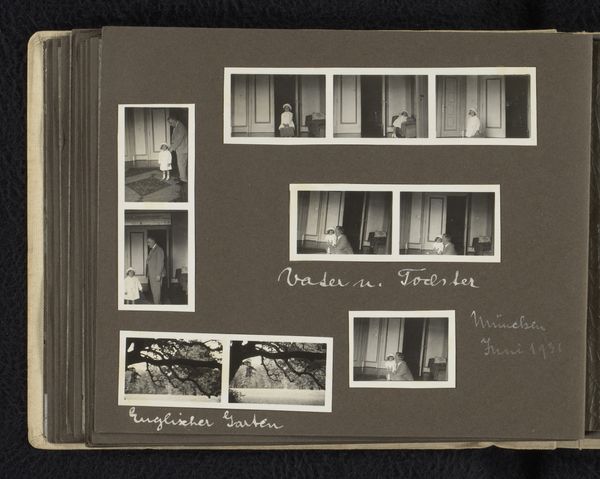 Vater u. Tochter
München
Juni 1931
Englischer Garten